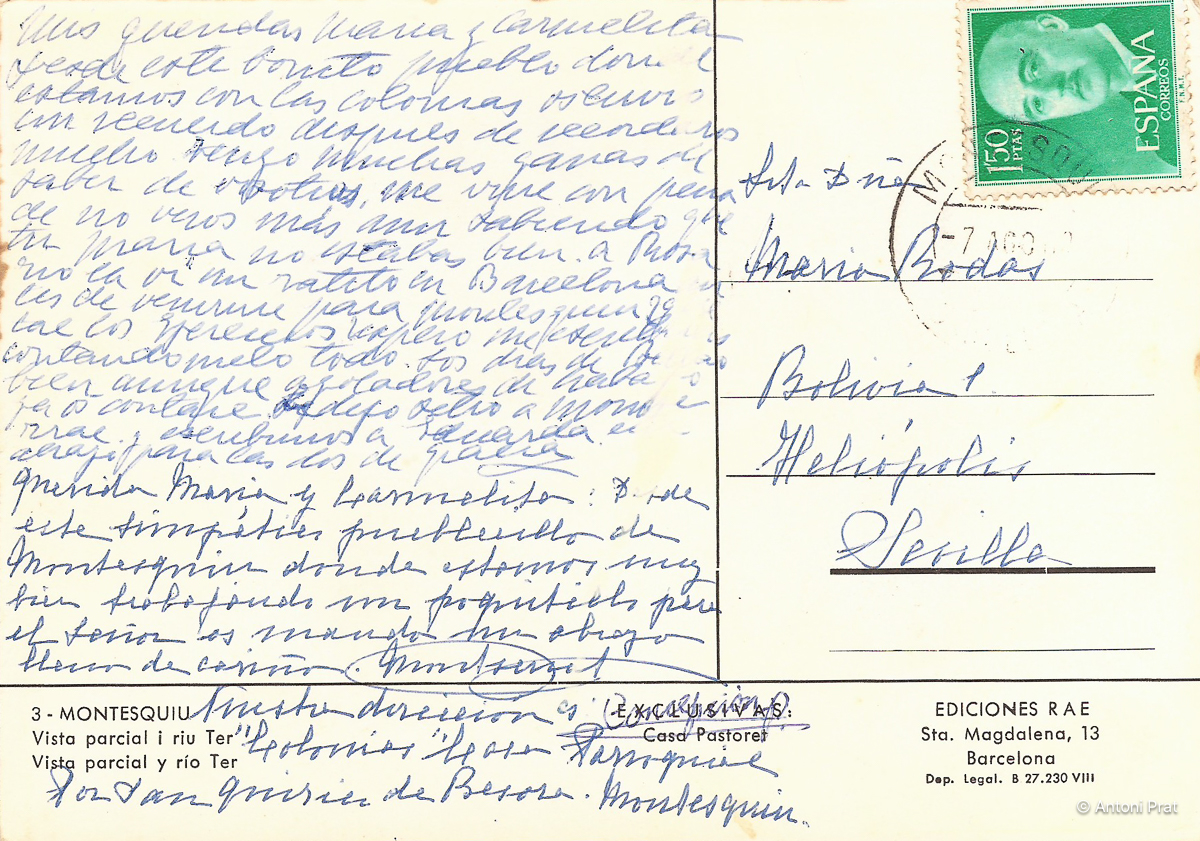 Mis queridas Maria y Carmelita
desde este bonito pueblo donde
estamos con las colonias os envio
un recuerdo después de recordaros
mucho. tengo muchas ganas de
saber de vosotras, me vine con pena
de no veros más aun sabiendo que
tu maria no estabas bien. a Rosa
rio la vi un ratito en Barcelona an
tes de venirme para montesquiu
los espero
contandomelo todo. Los dias de
bien aunque agotadores de traba
jo os contaré dejo sitio a Mont
serrat y escribirnos a
abrazo para las dos de
Querida Maria y Carmelita: Desde
este simpático pueblecillo de
Montesquiu donde estamos muy
bien trabajando un poquitillo para
el Señor os mando un abrazo
lleno de cariño. Montserrat
Nuestra dirección es
"Colonias" Casa Parroquial
Por San Quirico de Besora. Montesquiu.
3 - MONTESQUIU
Vista parcial i riu Ter
Vista parcial y río Ter
EXCLUSIVAS:
Casa Pastoret
EDICIONES RAE
Sta. Magdalena, 13
Barcelona
Dep. Legal. B 27.230 VIII
1'50 PTAS
ESPAÑA
CORREOS
F.N.M.T.
-7 AGO
Srta Dña
Maria Rodas
Bolivia 1
Heliópolis
Sevilla
© Antoni Prat